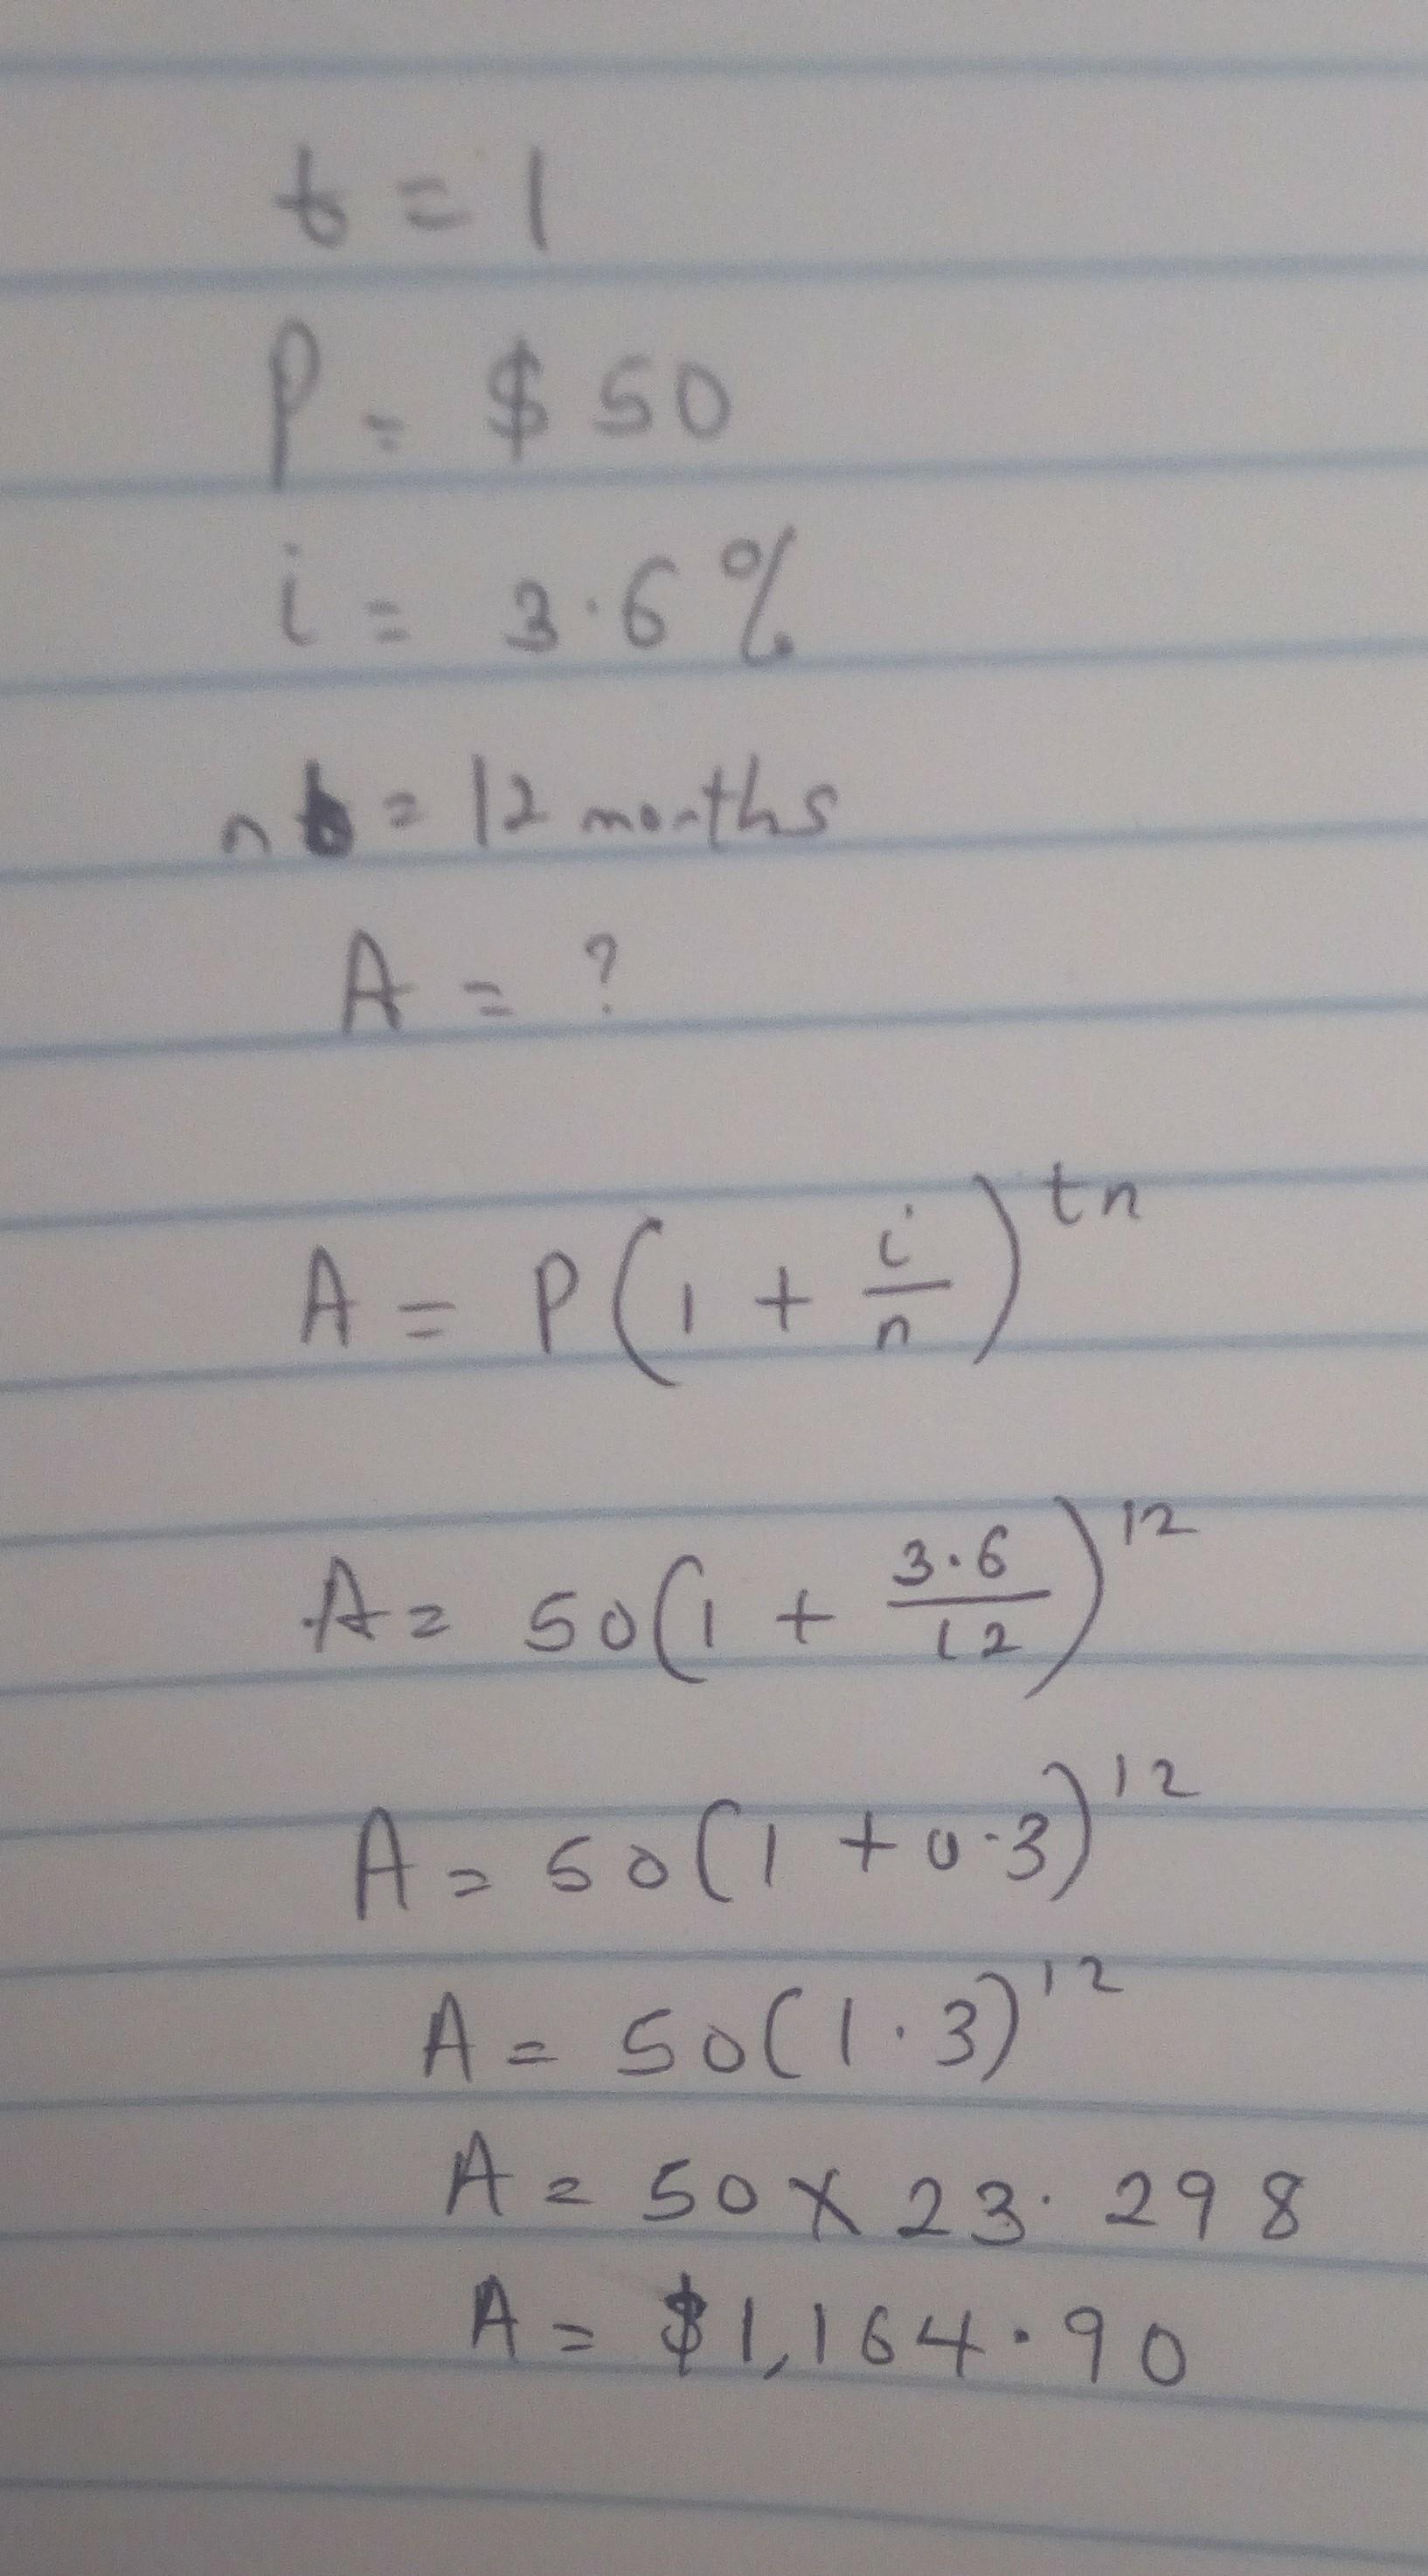 t = 1
P = $50
i = 3.6%
n = 12 months
A = ?
A = P(1 + i/n)^tn
A = 50(1 + 3.6/12)^12
A = 50(1 + 0.3)^12
A = 50(1.3)^12
A = 50 X 23.298
A = $1,164.90